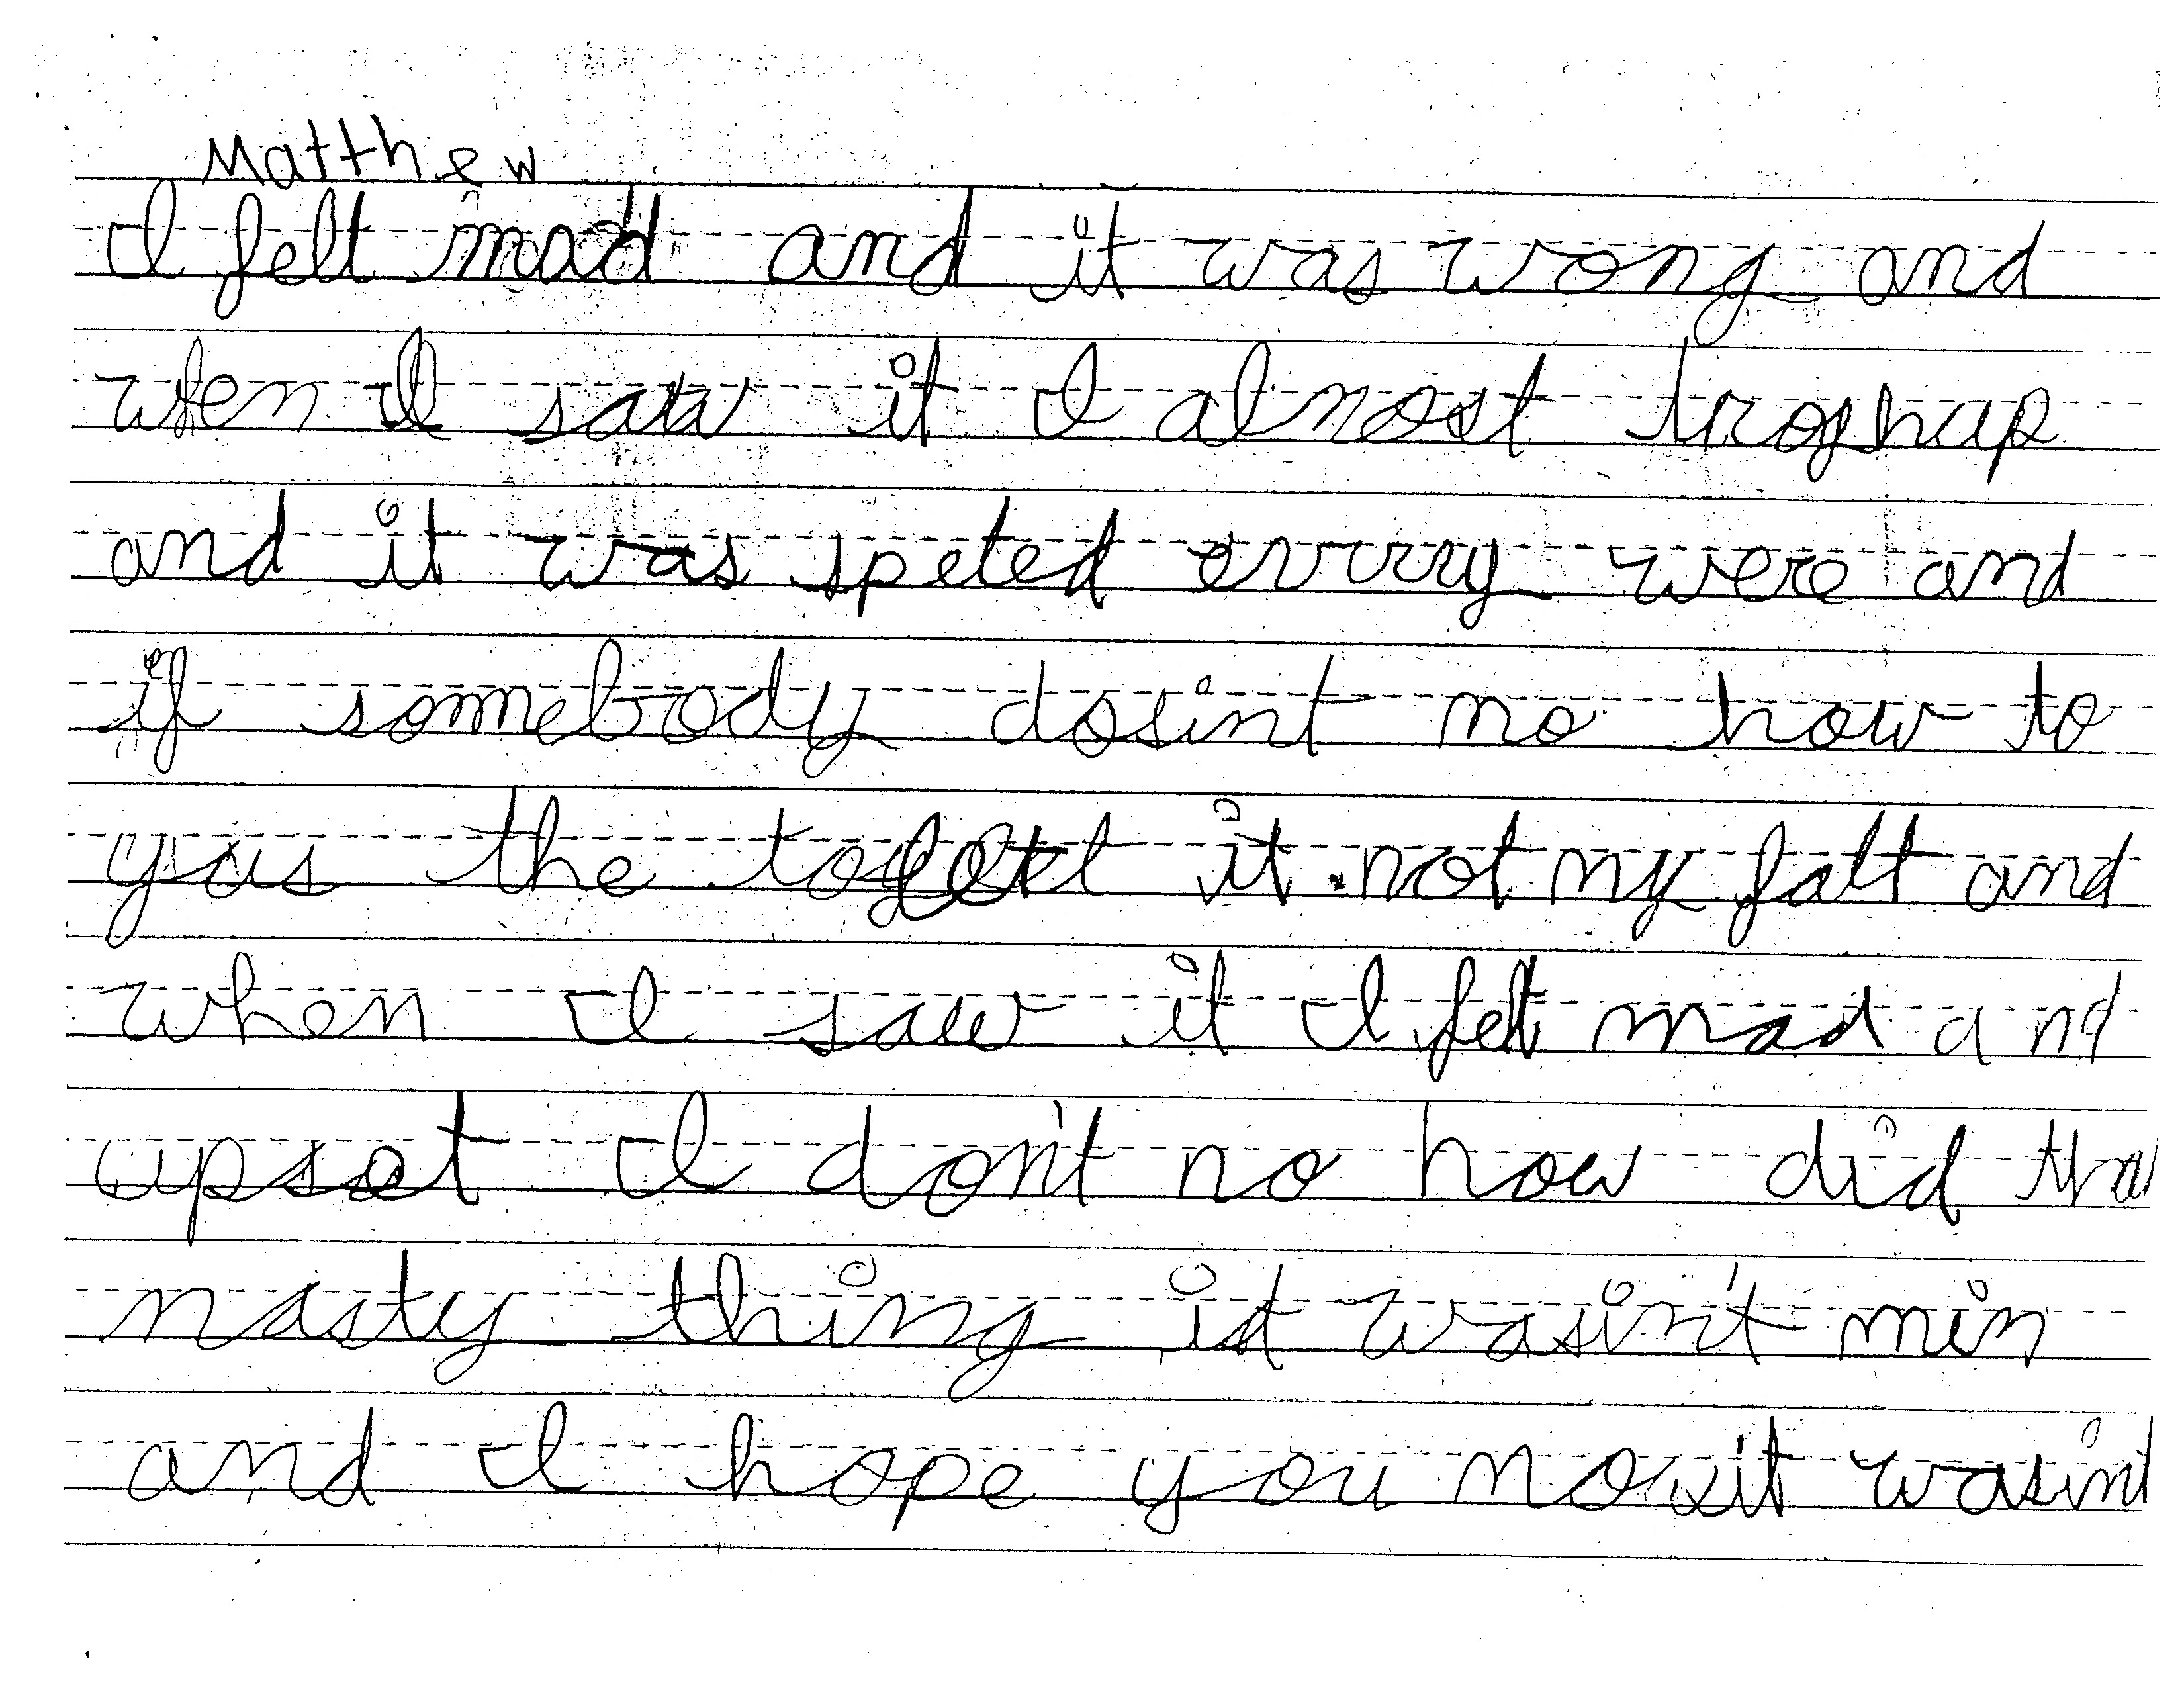 Matthew
I felt mad and it was wrong and
when I saw it I almost
and it was speted evvry were and
if somebody dosint no how to
yus the it not my falt and
when I saw it I felt mad and
upset I don't no how did tha
nasty thing it wasin't min
and I hope you now it wasint